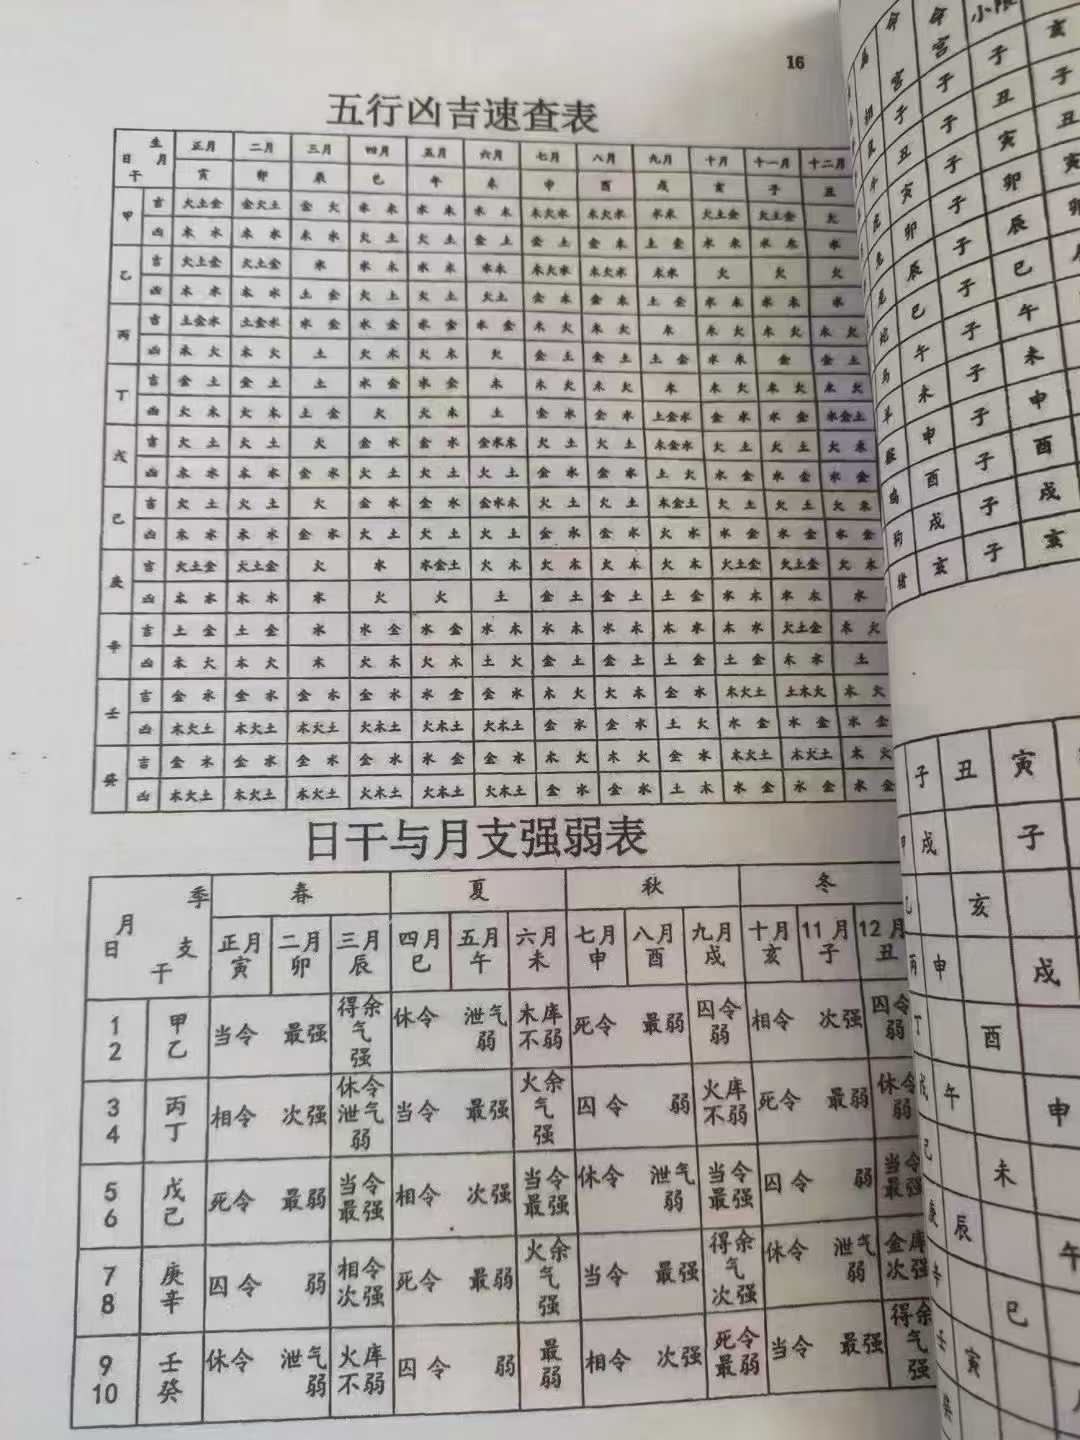 16
五行凶吉速查表
生 日 月 干 正月 二月 三月 四月 五月 六月 七月 八月 九月 十月 十一月 十二月
寅 卯 辰 巳 午 未 申 酉 戌 亥 子 丑
甲 吉 火土金 金火土 金 火 水 木 水 木 水 木 木火水 木火水 水木 火土金 火土金 火
凶 木 水 木 水 木 水 火 土 火 土 金 土 金 土 金 木 土 金 水 木 水 木 水
乙 吉 火土金 火土金 水 水 木 水 木 水木 木火水 木火水 木水 火 火 火
凶 木 水 木 水 土 金 火 土 火 土 火土 金 木 金 木 土 金 水 木 水 木 水
丙 吉 土金水 土金水 水 金 水 金 水 金 水 金 木 火 木 火 木 木 火 木 火 木 火
凶 木 火 木 火 土 火 木 火 木 火 金 土 金 土 土 金 水 木 金 金 土
丁 吉 金 土 金 土 土 水 金 水 金 木 木 火 木 火 木 木 火 木 火 木 火
凶 火 木 火 木 土 金 火 火 木 土 金 水 金 水 土金水 金 水 水 金 水金土
戊 吉 火 土 火 土 火 金 水 金 水 金水木 火 土 火 土 木金水 火 土 火 土 火 木
凶 木 水 木 水 金 水 火 土 火 土 火 土 金 水 金 水 土 火 水 金 水 金 水 金
己 吉 火 土 火 土 火 金 水 金 水 金水木 火 土 火 土 木金土 火 土 火 土 火 木
凶 木 水 木 水 金 水 火 土 火 土 火 土 金 水 金 水 火 水 水 金 水 金 水 金
庚 吉 火土金 火土金 火 水 水金土 火 木 火 木 火 木 火 木 火土金 火土金 火 木
凶 木 水 木 水 水 火 火 土 金 土 金 土 土 金 水 木 水 木 水
辛 吉 土 金 土 金 水 水 金 水 金 水 木 水 木 水 木 木 水 木 水 火土金 木 火
凶 木 火 木 火 木 火 木 火 木 土 火 金 土 金 土 土 金 土 金 木 水 土
壬 吉 金 水 金 水 金 水 金 水 水 金 金 水 木 火 火 木 金 水 木火土 土木火 木 火
凶 木火土 木火土 木火土 火木土 火木土 火木土 金 水 金 水 土 火 水 金 水 金 水 金
癸 吉 金 水 金 水 金 水 金 水 水 金 金 水 木 火 木 火 金 水 木火土 木火土 木 火
凶 木火土 木火土 木火土 火木土 火木土 火木土 金 水 金 水 土 木 水 金 水 金 水 金
日干与月支强弱表
季 月 日 支 干 春 夏 秋 冬
正月 二月 三月 四月 五月 六月 七月 八月 九月 十月 11月 12月
寅 卯 辰 巳 午 未 申 酉 戌 亥 子 丑
1 2 甲 乙 当令 最强 得余气 强 休令 泄气弱 木库不弱 死令 最弱 囚令弱 相令 次强 囚令弱
3 4 丙 丁 相令 次强 休令泄气弱 当令 最强 火余气 强 囚令 弱 火库不弱 死令 最弱 休令弱
5 6 戊 己 死令 最弱 当令最强 相令 次强 当令最强 休令 泄气弱 当令最强 囚令 弱 当令最强
7 8 庚 辛 囚令 弱 相令次强 死令 最弱 火余气 强 当令 最强 得余气 次强 休令 泄气弱 金库次强
9 10 壬 癸 休令 泄气弱 火库不弱 囚令 弱 最弱 相令 次强 死令最弱 当令 最强 得余气强
命宫 小限
子 亥
丑 子 子
寅 子 丑 丑
卯 子 寅 寅
辰 子 卯 卯
巳 子 辰
午 子 巳
马 未 子 午
羊 申 子 未
酉 子 申
鸡 戌 子 酉
狗 亥 子 戌
猪 亥
子 丑 寅
甲 戌 子
亥
丙 申 戌
丁 酉
午 申
己 未
庚 辰 午
辛 巳
壬 寅